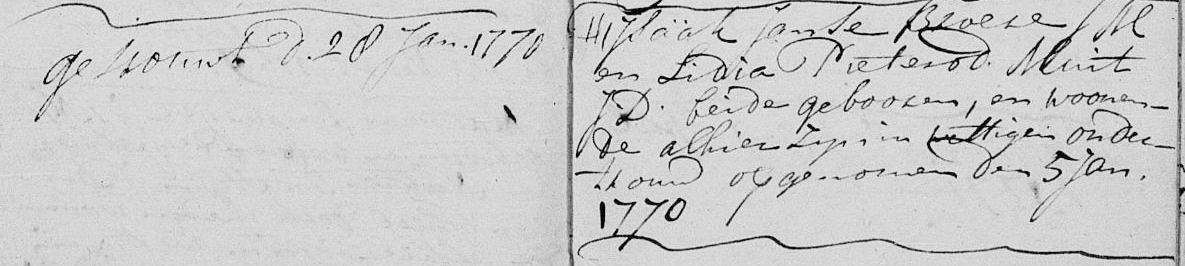 getrouwt d. 28 Jan. 1770
Isaäk Janse Broese JM
en Lidia Pietersd. Muit
J:D. beide gebooren, en woonen-
de alhier zijn in wettigen onder-
trouw opgenomen den 5 Jan.
1770